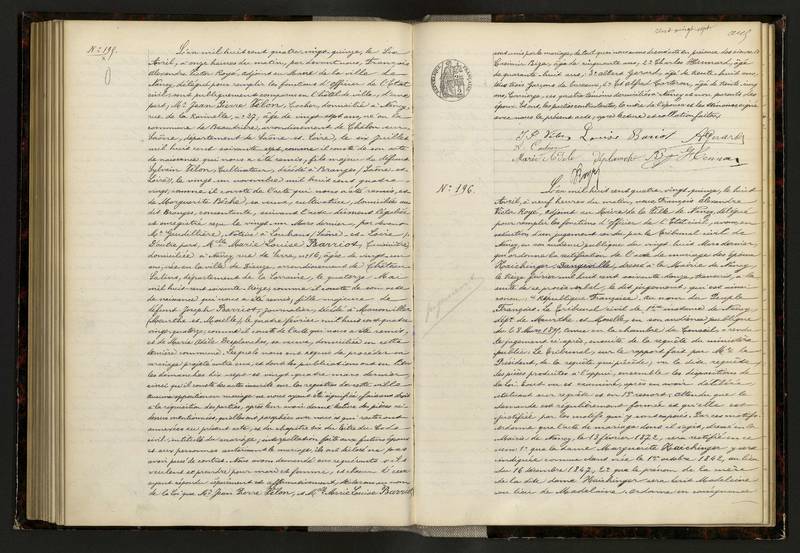 N° 195.
L'an mil huit cent quatre vingt quinze, le Six
Avril, à onze heures du matin, par devant nous, François
Alexandre Victor Roye, adjoint au Maire de la ville de
Nancy, délégué pour remplir les fonctions d'officier de l'État
civil, sont publiquement comparus en l'hôtel de ville, d'une
part, Mr Jean Pierre Vélon, Cocher, domicilié à Nancy,
rue de la Ravinelle, n° 27, âgé de vingt sept ans, né en la
commune de arrondissement de Châlon sur
Saône, département de Saône et Loire, le six juillet
mil huit cent soixante sept, comme il conste de son acte
de naissance qui nous a été remis, fils majeur de défunt
Sylvain Vélon, Cultivateur, décédé à Branges (Saône et
Loire), le vingt un novembre mil huit cent quatre
vingt, comme il conste de l'acte qui nous a été remis, et
de Marguerite sa veuve, cultivatrice, domiciliée au
dit Branges, consentante, suivant l'acte dûment légalisé
et enregistré reçu le vingt un Mars dernier, par devant
Me Notaire à Louhans (Saône et Loire);
D'autre part, Melle Marie Louise Barriot, Cuisinière,
domiciliée à Nancy, rue de Serre, n° 16, âgée de vingt un
ans, née en la ville de Dieuze, arrondissement de Château
Salins, département de la Lorraine, le quatorze Mai
mil huit cent soixante treize, comme il conste de son acte
de naissance qui nous a été remis, fille majeure de
défunt Joseph Barriot, journalier, décédé à
(Meurthe et Moselle), le quatre février mil huit cent quatre
vingt quatorze, comme il conste de l'acte qui nous a été remis,
et de Marie Adèle Deplanche, sa veuve, domiciliée en cette
dernière commune. Lesquels nous ont requis de procéder au
mariage projeté entre eux, et dont les publications ont eu lieu
les dimanches dix sept et vingt quatre mars dernier,
ainsi qu'il conste des actes inscrits sur les registres de cette ville.
Aucune opposition au mariage ne nous ayant été signifiée, faisant droit
à la réquisition des parties, après leur avoir donné lecture des pièces ci-
dessus mentionnées, qui sont paraphées avec nous et qui resteront
annexées au présent acte, et du chapitre six du titre du Code
civil, intitulé du mariage, interpellation faite aux futurs époux
et aux personnes autorisant le mariage, ils ont déclaré ne pas
avoir passé de contrat. Nous avons demandé aux requérants s'ils
veulent se prendre pour mari et femme, et chacun d'eux
ayant répondu séparément et affirmativement, déclarons au nom
de la loi que Mr Jean Pierre Vélon, et Melle Marie Louise Barriot,
sont unis par le mariage, de tout quoi nous avons dressé acte en présence des sieurs 1°
Casimir Bizar, âgé de cinquante ans, 2° Charles Hennard, âgé
de quarante huit ans, 3° Alexis Gérard, âgé de trente huit ans,
tous trois Garçons de bureau, 4° et Adolphe âgé de trente cinq
ans, Concierge, ces quatre témoins domiciliés à Nancy et non parents des
époux. Et ont, les parties contractantes, la mère de l'épouse et les témoins signé
avec nous le présent acte, après lecture et collation faites.
J. P. Vélon Louise Barriot A. Gérard
Marie Adèle Deplanche Hennard
Roye
N° 196.
L'an mil huit cent quatre vingt quinze, le huit
Avril, à neuf heures du matin, nous François Alexandre
Victor Roye, adjoint au Maire de la Ville de Nancy, délégué
pour remplir les fonctions d'officier de l'État civil, avons,
en exécution d'un jugement rendu par le Tribunal civil de
Nancy, en son audience publique du vingt huit Mars dernier,
qui ordonne la rectification de l'acte de mariage des époux
Haichinger, dressé à la Mairie de Nancy,
le treize février mil huit cent soixante douze, transcrit, à la
suite de ce procès verbal, le dit jugement qui est ainsi
conçu: "République Française. Au nom du Peuple
Français. Le Tribunal civil de 1re instance de Nancy,
dépt de Meurthe et Moselle, en son audience publique
du 28 Mars 1895, tenue en la chambre du Conseil, a rendu
le jugement ci après, ensuite de la requête du ministère
public. Le Tribunal, sur le rapport fait par Mr le
Président, de la requête qui précède; vu la dite requête,
les pièces produites à l'appui, ensemble les dispositions de
la loi; tout vu et examiné, après en avoir délibéré;
statuant sur requête et en 1er ressort; attendu que la
demande est régulièrement formée et qu'elle est
justifiée par les motifs qui y sont exposés; Par ces motifs
ordonne que l'acte de mariage dont il s'agit, dressé en la
Mairie de Nancy, le 13 février 1872, sera rectifié en ce
sens 1° que la dame Marguerite Haichinger y sera
indiquée comme étant née le 1er octobre 1842, au lieu
du 16 décembre 1847, 2° que le prénom de la mère
de la dite dame Haichinger sera écrit Madeleine
au lieu de Madelaine; ordonne en conséquence